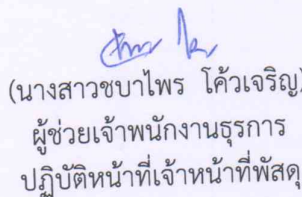 (นางสาวชบาไพร โค้วเจริญ)
ผู้ช่วยเจ้าพนักงานธุรการ
ปฏิบัติหน้าที่เจ้าหน้าที่พัสดุ